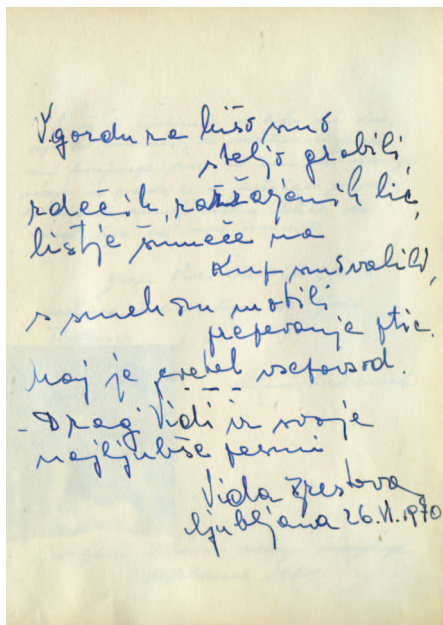 V gozdu za hišo smo
steljo grabili,
rdečih, razžarjenih lic,
listje šumeče na
kup smo valili,
s smehom motili
prepevanje ptic.
Maj je cvetel vsepovsod.
- Dragi Vidi iz svoje
najljubše pesmi
Vida Brestova
Ljubljana 26.VI.1970